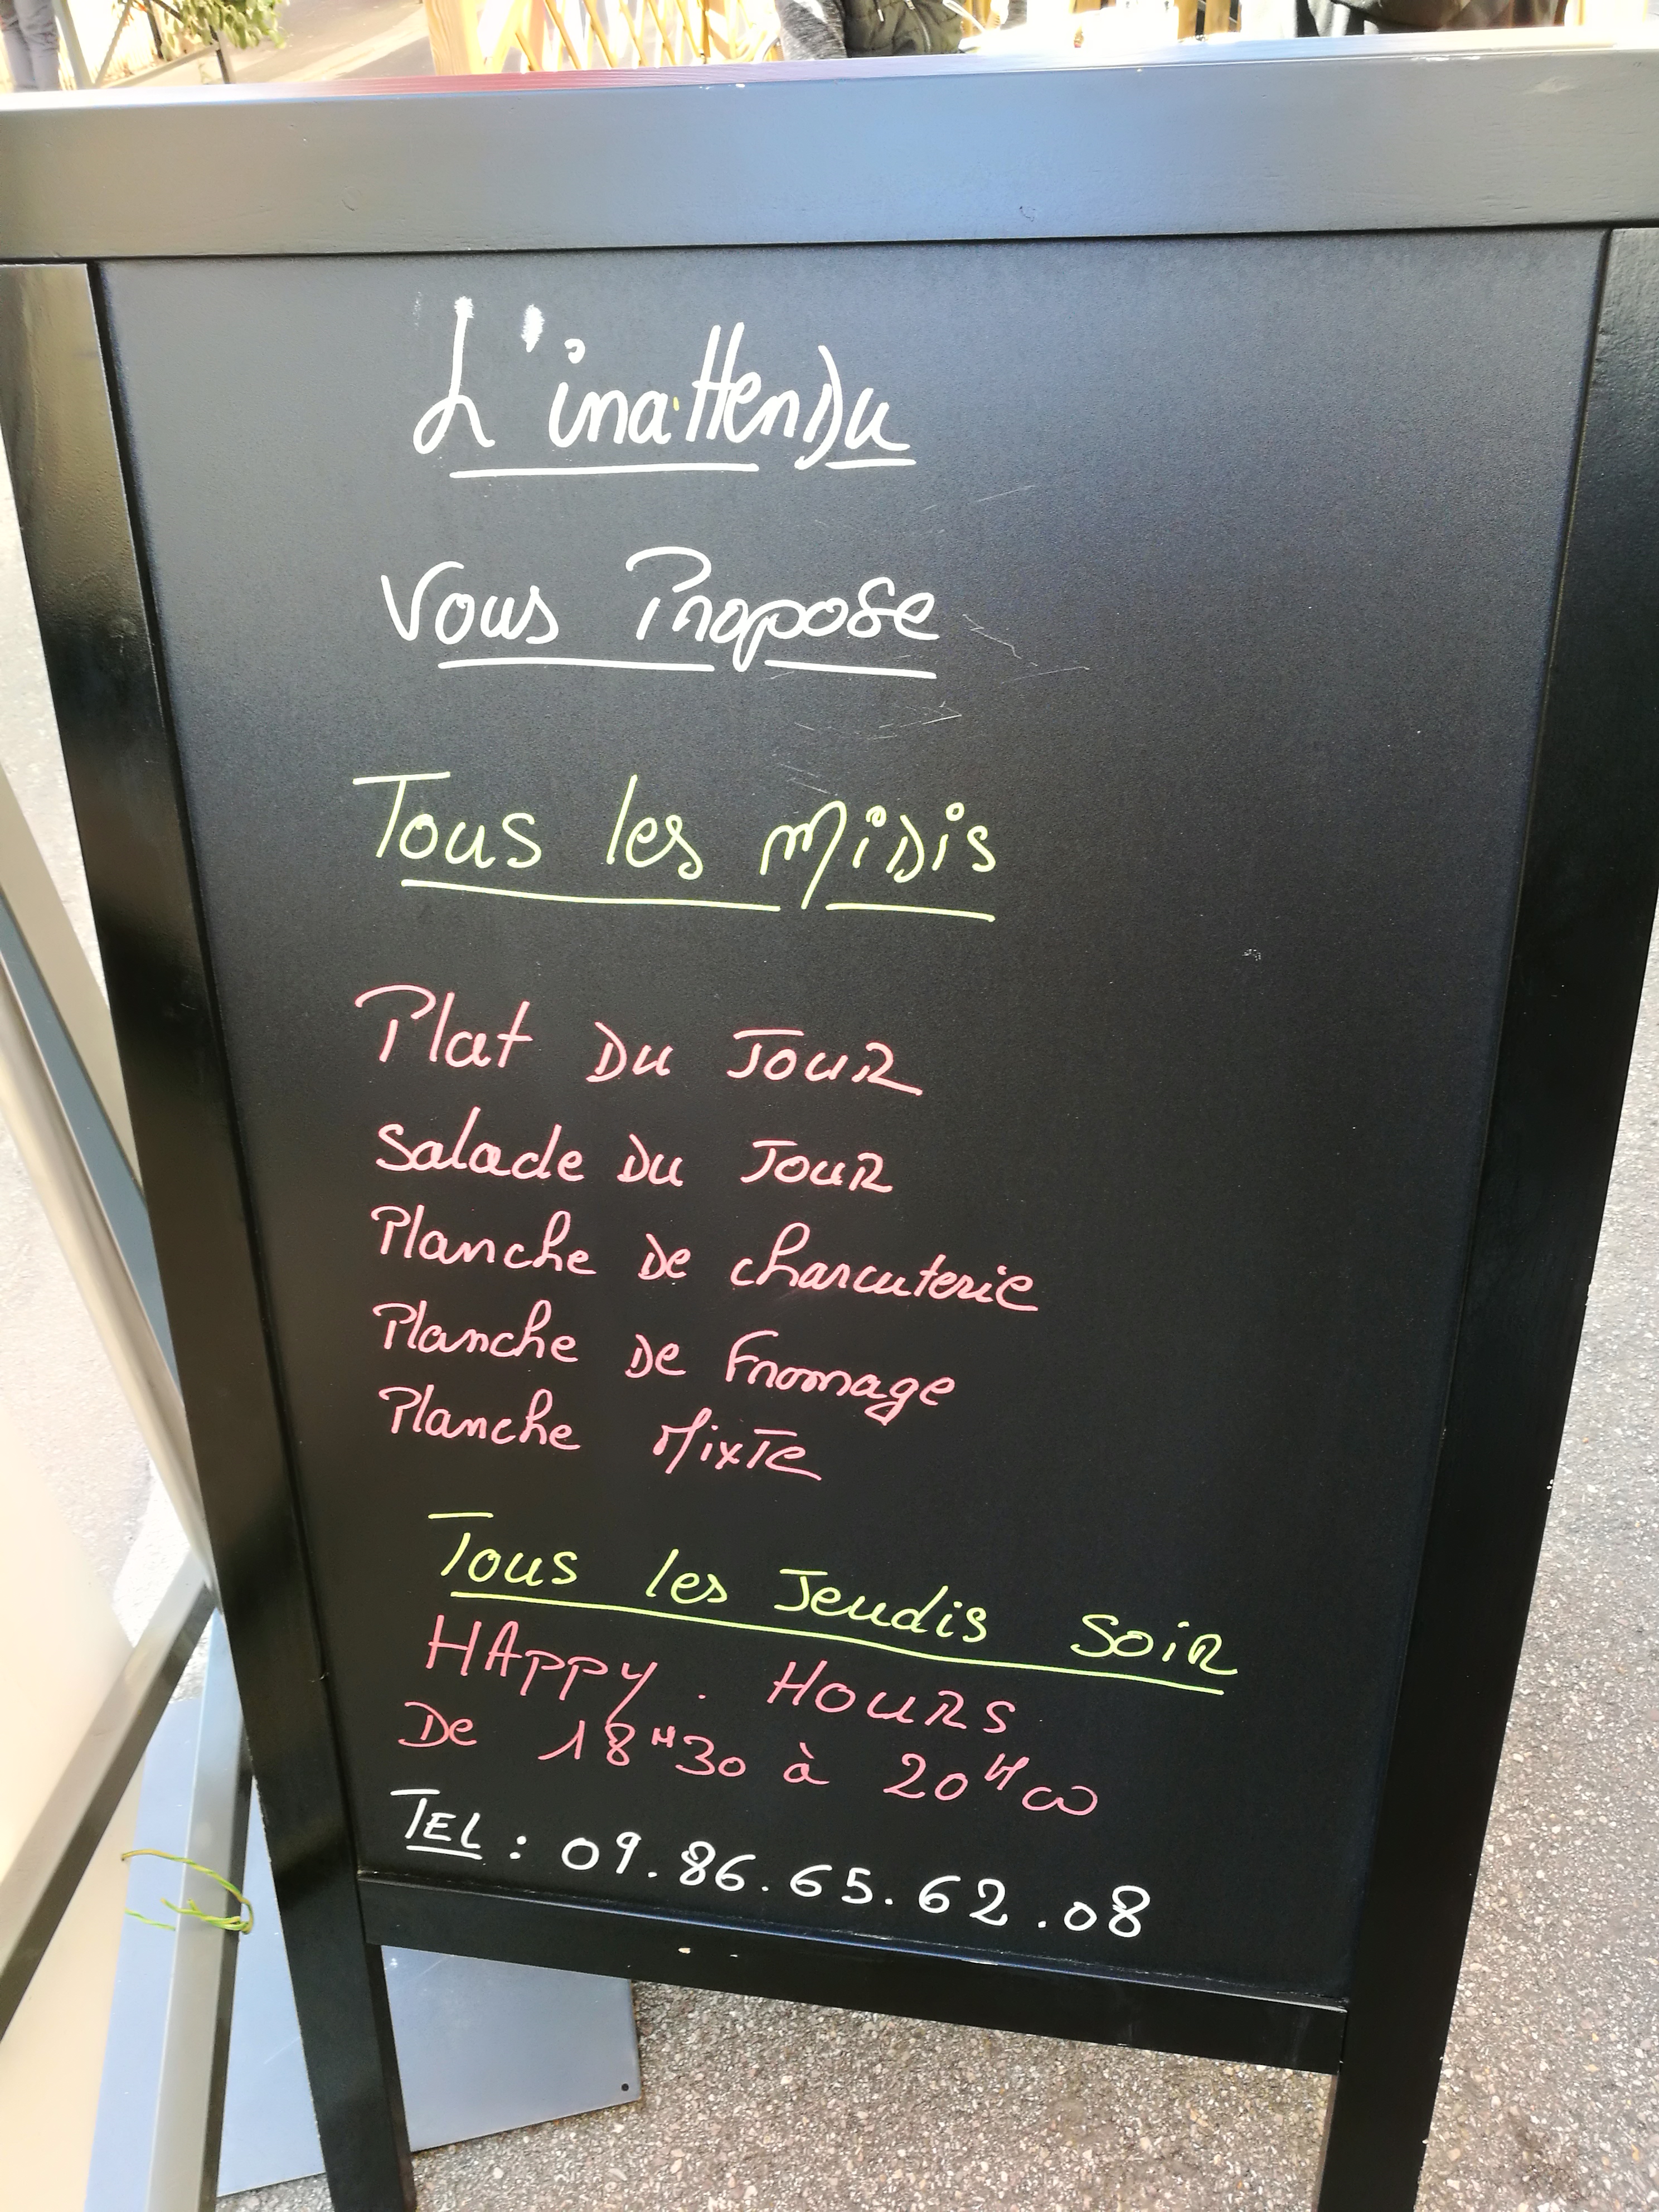 L'inattendu
Vous Propose
Tous les Midis
Plat Du Jour
Salade Du Jour
Planche De charcuterie
Planche De Fromage
Planche Mixte
Tous les Jeudis Soir
HAppy. HOURS
De 18H30 à 20H00
TEL : 09.86.65.62.08